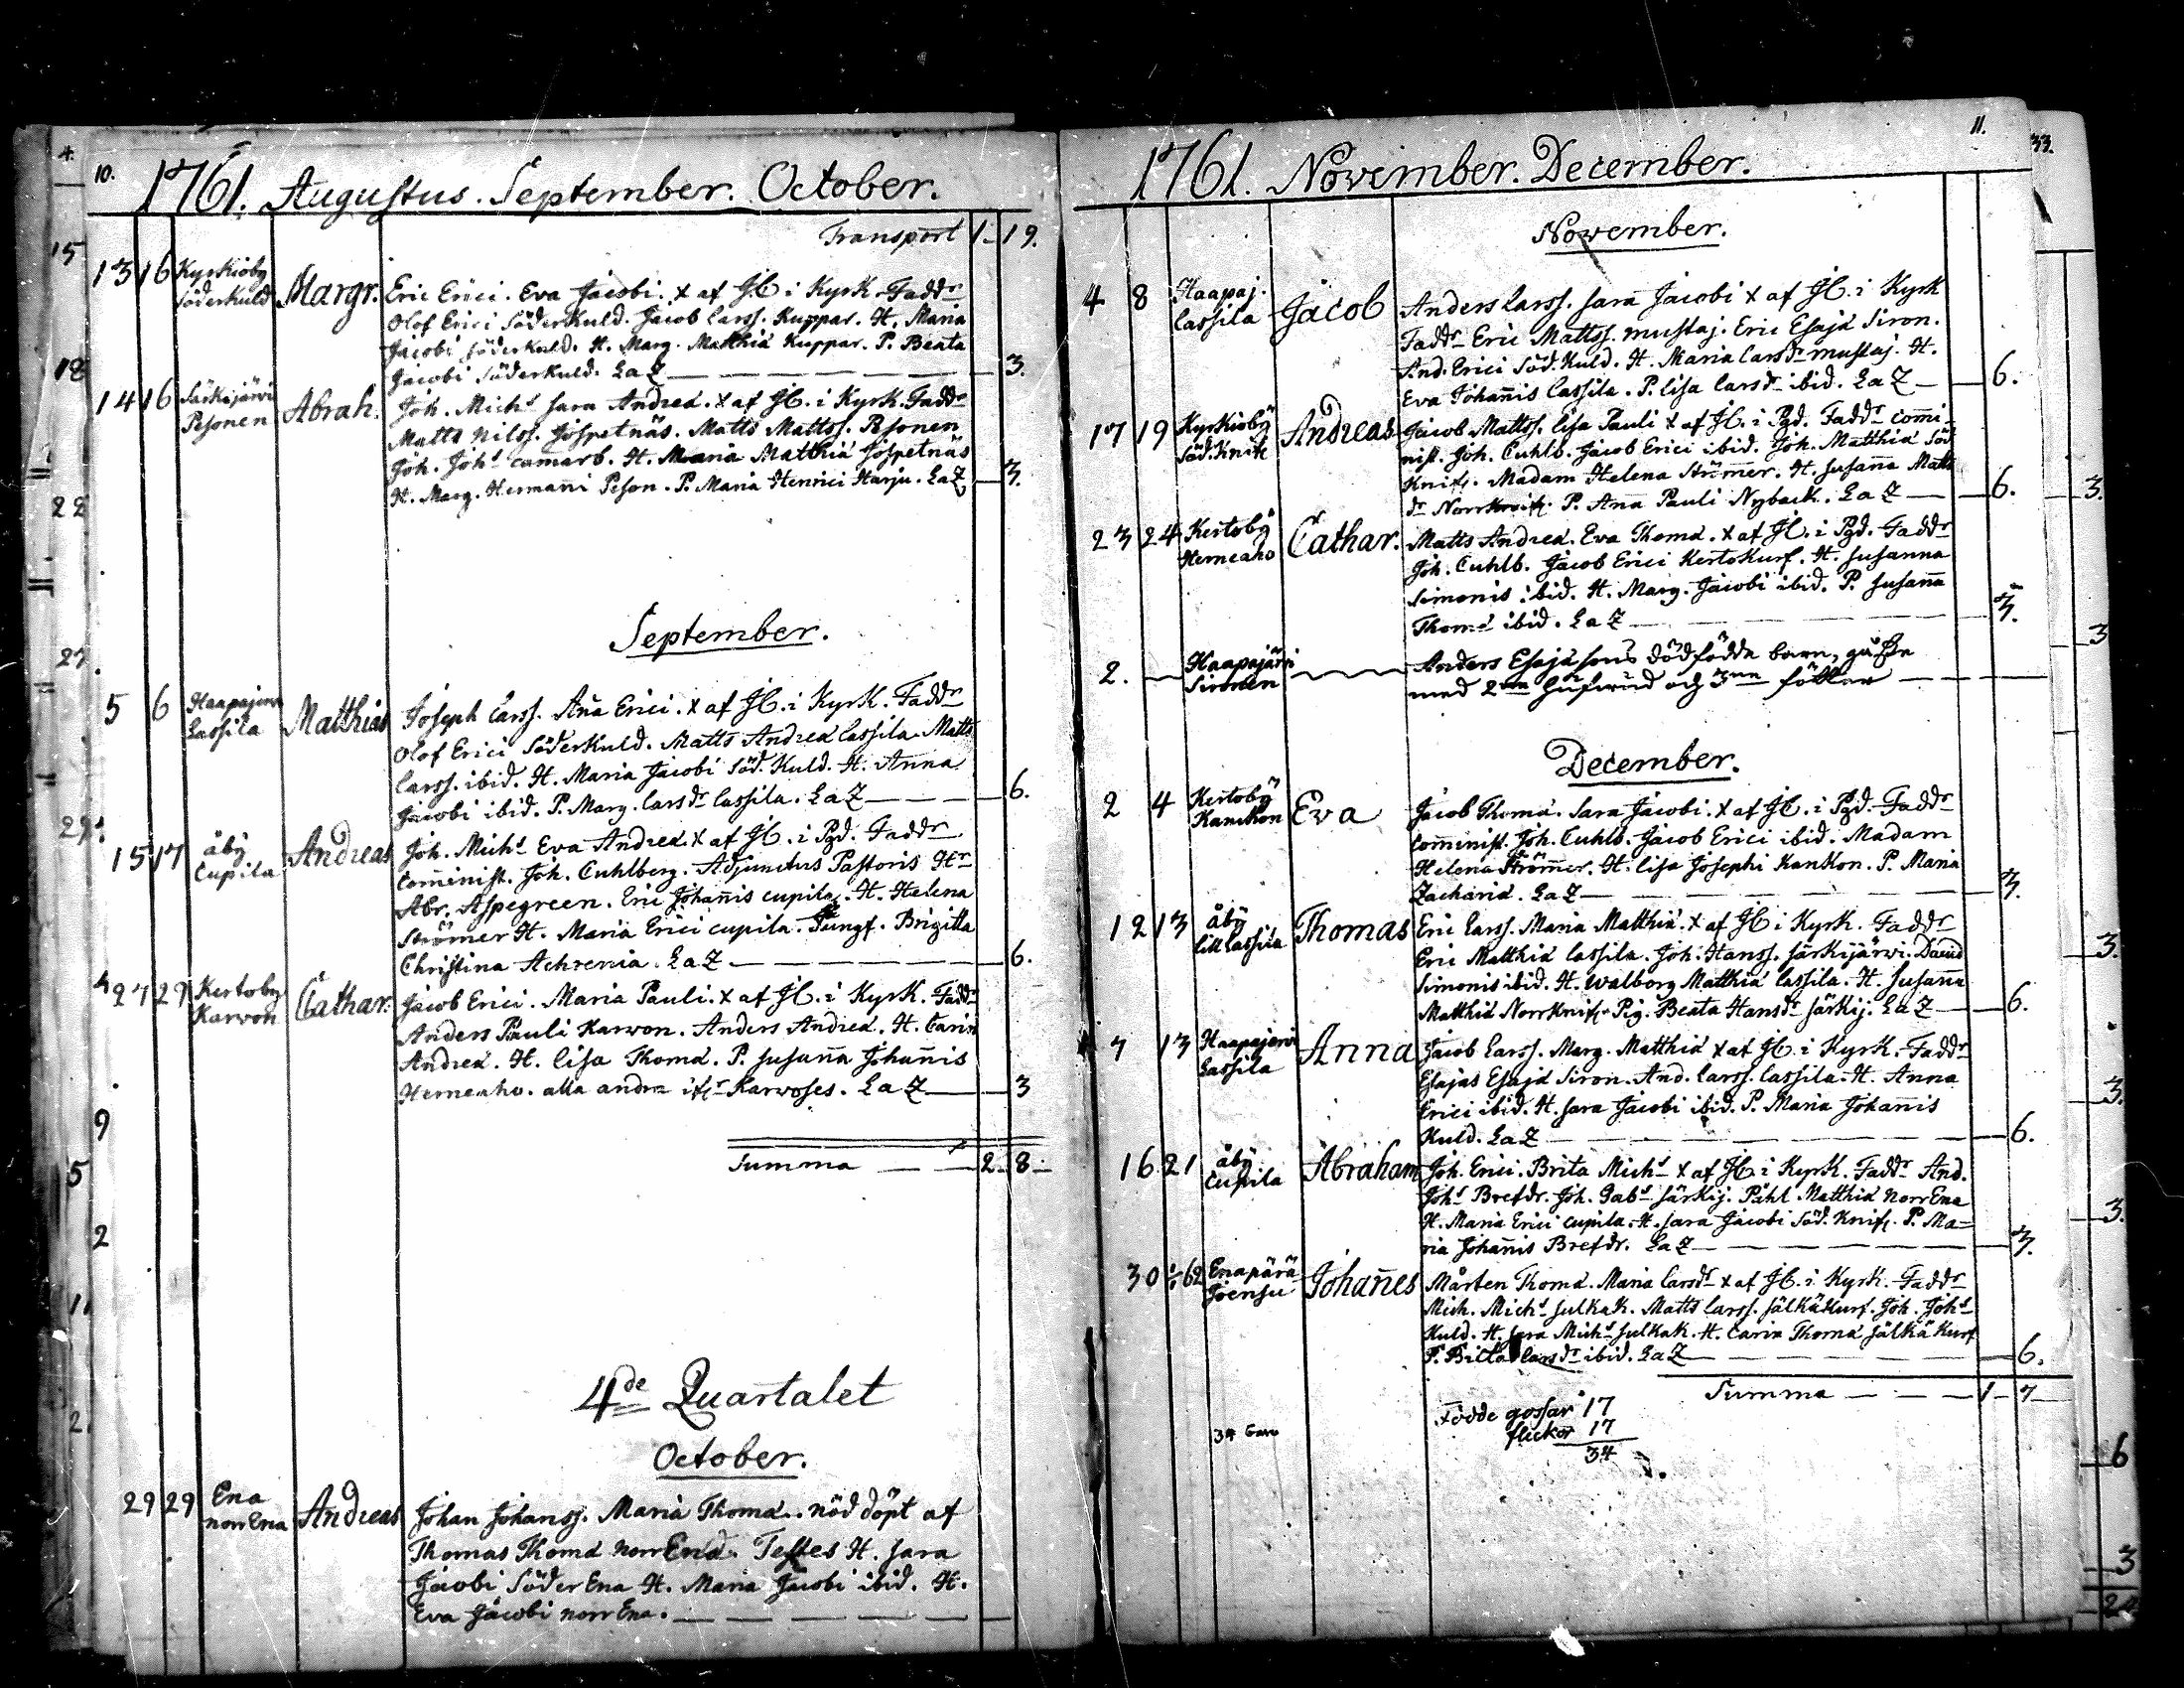 10.
1761. Augustus. September. October.
Transport 1-19.
13 16 Kyrkioby Söderkuld Margr. Eric Erici. Eva Jacobi. x af JC. i Kyrk. Faddr
Olof Erici Söderkuld. Jacob Larss. Kuppar. H. Maria
Jacobi Söderkuld. H. Marg. Matthiæ Kuppar. P. Beata
Jacobi Söderkuld. LaZ 3.
14 16 Särkijärvi Pesonen Abrah. Joh. Michs Sara Andreæ. x af JC. i Kyrk. Faddr
Matts Nilss. Jospetnäs. Matts Mattss. Pesonen
Joh. Johs camarb. H. Maria Matthiæ Jospetnäs
H. Marg. Hermanni Peson. P. Maria Henrici Harju. LaZ 3.
September.
5 6 Haapajerv Lassila Matthias Joseph Larss. Aña Erici. x af JC. i Kyrk. Faddr
Olof Erici Söderkuld. Matts Andreæ Lassila. Matts
Larss. ibid. H. Maria Jacobi Söd. Kuld. H. Anna
Jacobi ibid. P. Marg. Larsdr Lassila. LaZ 6.
15 17 åby Cupila Andreas Joh. Michs Eva Andreæ x af JC. i Pgd. Faddr
Com̄inist. Joh. Cuhlberg. Adjunctus Pastoris Hr
Abr. Aspegreen. Eric Johan̄is cupila. H. Helena
Strömer H. Maria Erici cupila. Jungf. Brigitta
Christina Achrenia. LaZ 6.
27 29 Kertoby Karvon Cathar. Jacob Erici. Maria Pauli. x af JC. i Kyrk. Faddr
Anders Pauli Karwon. Anders Andreæ. H. Carin
Andreæ. H. Lisa Thomæ. P. Susan̄a Johan̄is
Herneaho. alla andra ifr Karwoses. LaZ 3
Summa 2-8-
4de Quartalet
October.
29 29 Ena norrEna Andreas Johan Johanss. Maria Thomæ. nöddöpt af
Thomas Thomæ norrEna. Testes H. Sara
Jacobi SöderEna H. Maria Jacobi ibid. H.
Eva Jacobi norrEna.
11.
1761. November. December.
November.
4 8 Haapaj. Lassila Jacob Anders Larss. Sara Jacobi x af JC. i Kyrk
Faddr Eric Mattss. mustaj. Eric Esajæ Siron.
And. Erici Söd. Kuld. H. Maria Larsdr mustaj. H.
Eva Johan̄is Lassila. P. Lisa Larsdr ibid. LaZ 6.
17 19 Kyrkioby Söd. Knift Andreas Jacob Mattss. Lisa Pauli x af JC. i Pgd. Faddr com̄i-
nist. Joh. Cuhlb. Jacob Erici ibid. Joh. Matthiæ Söd
Knift. Madam Helena Strömer. H. Susan̄a Matts
dr Norrknift. P. Ana Pauli Nyback. LaZ 6.
23 24 Kertoby Herneaho Cathar. Matts Andreæ. Eva Thomæ. x af JC. i Pgd. Faddr
Joh. Cuhlb. Jacob Erici KertoKurf. H. Susanna
Simonis ibid. H. Marg. Jacobi ibid. P. Susan̄a
Thomæ ibid. LaZ 3.
2. Haapajärvi Sironen Anders Esajæ sons dödfödda barn,
med 2ne hufwud och 3ne fötter
December.
2 4 Kertoby Kanckon Eva Jacob Thomæ. Sara Jacobi. x af JC. i Pgd. Faddr
Com̄inist. Joh. Cuhlb. Jacob Erici ibid. Madam
Helena Strömer. H. Lisa Josephi Kankon. P. Maria
Zachariæ. LaZ 3.
12 13 åby LillLassila Thomas Eric Larss. Maria Matthiæ. x af JC i Kyrk. Faddr
Eric Matthiæ Lassila. Joh. Hanss. Särkijärwi. David
Simonis ibid. H. Walborg Matthiæ Lassila. H. Susan̄a
Matthiæ Norrknift. Pig. Beata Hansdr Särkij. LaZ 6.
7 13 Haapajervi Lassila Anna Jacob Larss. Marg. Matthiæ x af JC. i Kyrk. Faddr
Esajas Esajæ Siron. And. Larss. Lassila. H. Anna
Erici ibid. H. Sara Jacobi ibid. P. Maria Johan̄is
Kuld. LaZ 6.
16 21 åby Cupila Abraham Joh. Erici. Brita Michs x af JC. i Kyrk. Faddr And.
Johs Brefdr. Joh. Gabs Särkij. Påhl Matthiæ norrEna
H. Maria Erici cupila. H. Sara Jacobi Söd. Knift. P. Ma=
ria Johan̄is Brefdr. LaZ 3.
30 1/1 62 Enapärä Joensu Johan̄es Mårten Thomæ. Maria Larsdr x af JC. i Kyrk. Faddr
Mich. Michs Julkak. Matts Larss. Jälkäkurf. Joh. Johs
Kuld. H. Sara Michs Julkak. H. Carin Thomæ Jälkäkurf
P. Brita Larsdr ibid. LaZ 6.
Summa 1-7
Födde gossar 17
flickor 17
34